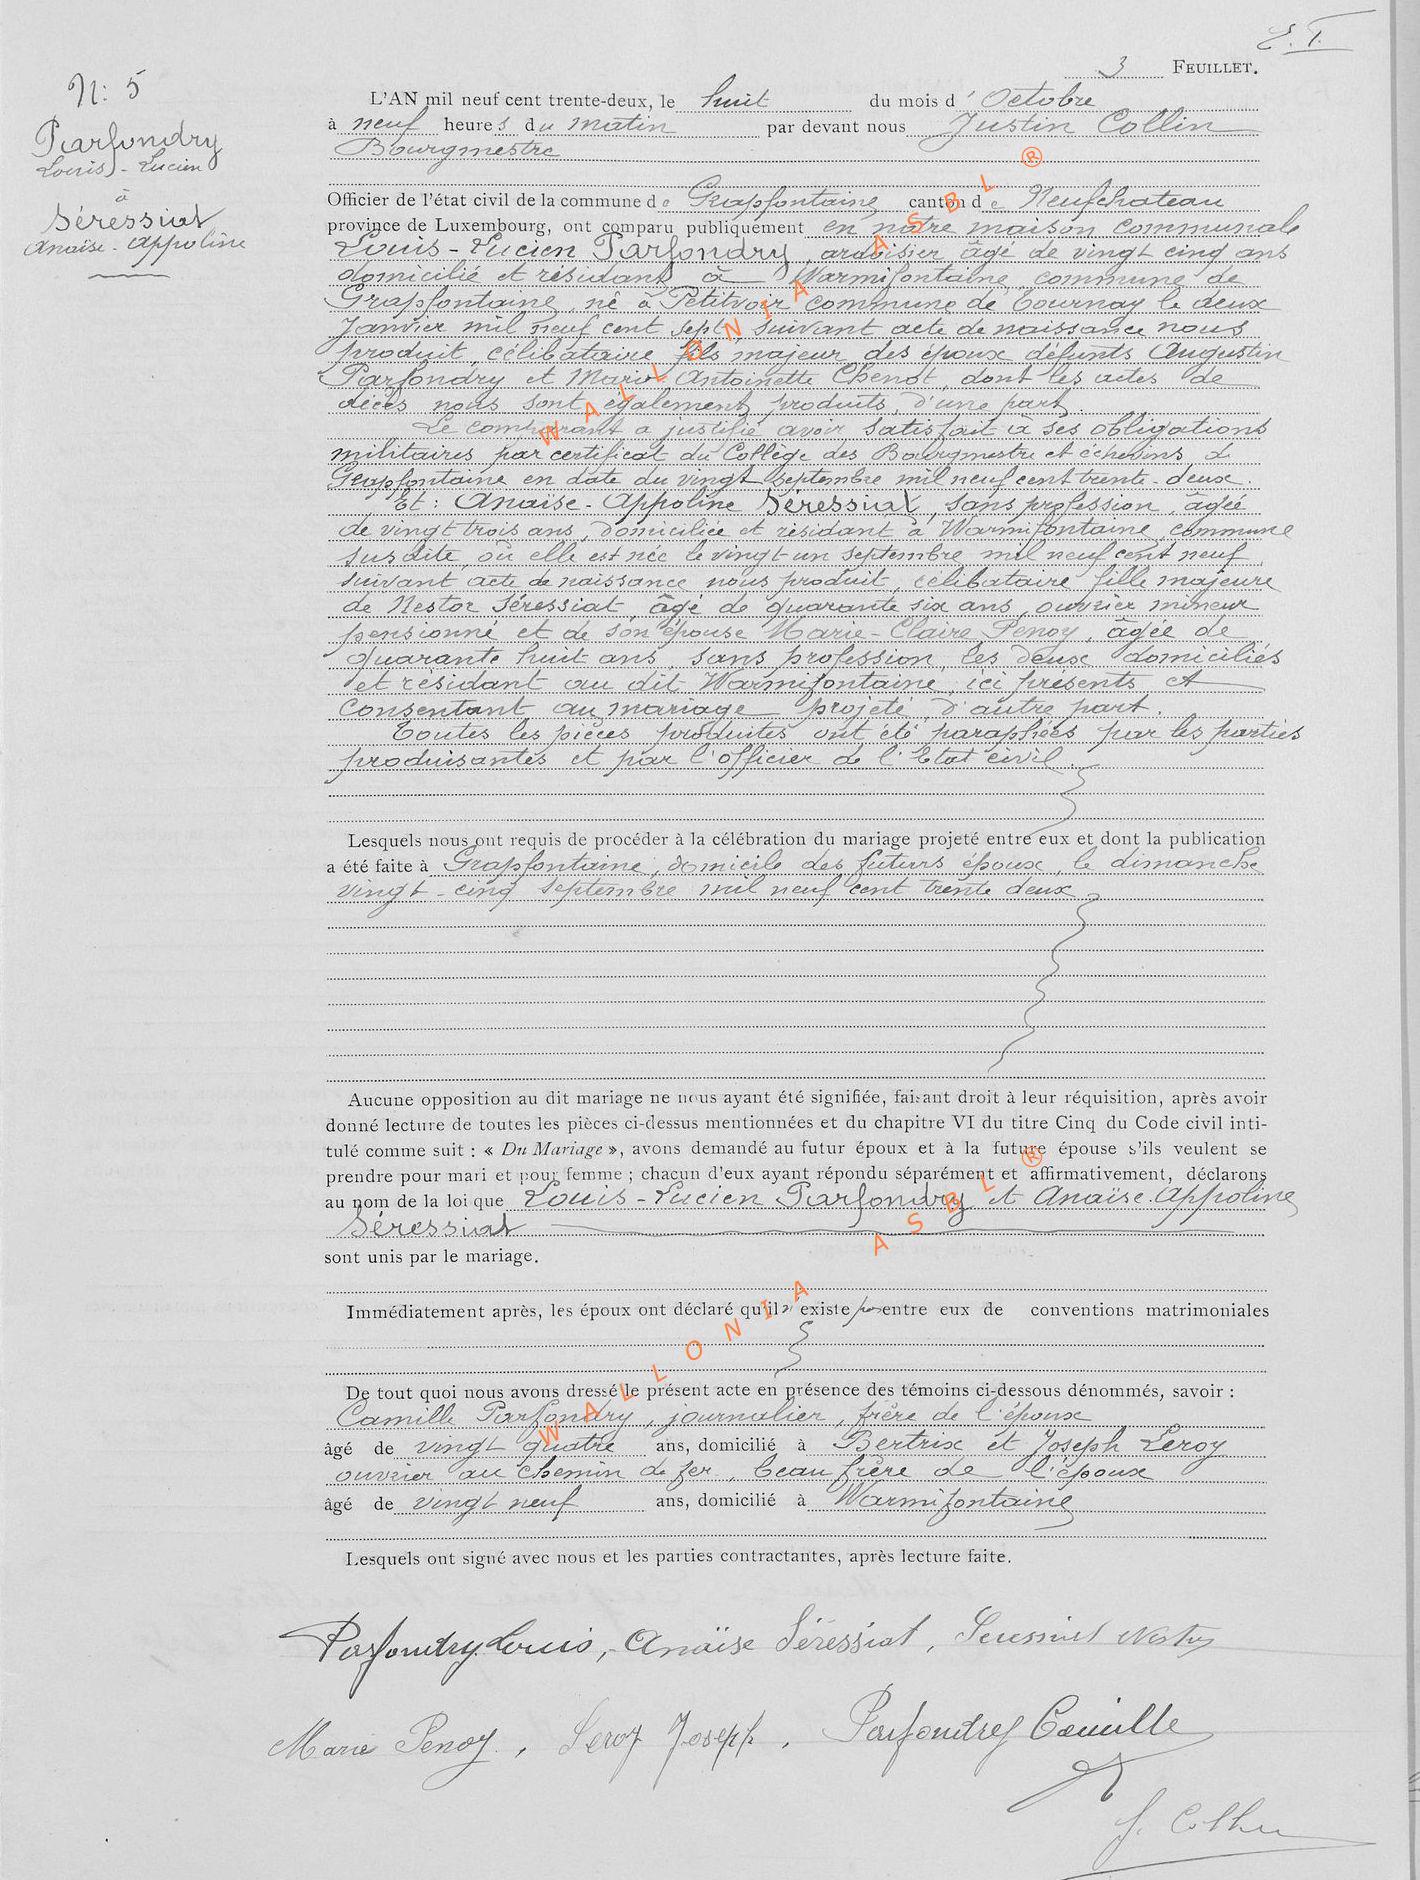 3 FEUILLET.
N: 5
Parfondry
Louis - Lucien
à
Séressiat
Anaïse - Appoline
L'AN mil neuf cent trente-deux, le huit du mois d' Octobre
à neuf heures du matin par devant nous Justin Collin
Bourgmestre
Officier de l'état civil de la commune de Grapfontaine canton de Neufchateau
province de Luxembourg, ont comparu publiquement en notre maison communale
Louis - Lucien Parfondry, ardoisier, âgé de vingt cinq ans
domicilié et résidant à Warmifontaine commune de
Grapfontaine, né à Petitvoir commune de Tournay le deux
Janvier mil neuf cent sept, suivant acte de naissance nous
produit, célibataire fils majeur des époux défunts Augustin
Parfondry et Marie Antoinette Chenot, dont les actes de
décès nous sont également produits, d'une part.
Le comparant a justifié avoir satisfait à ses obligations
militaires par certificat du Collège des Bourgmestre et échevins de
Grapfontaine en date du vingt septembre mil neuf cent trente-deux.
Et : Anaïse - Appoline Séressiat, sans profession, âgée
de vingt trois ans, domiciliée et résidant à Warmifontaine, commune
susdite, où elle est née le vingt un septembre mil neuf cent neuf,
suivant acte de naissance nous produit, célibataire fille majeure
de Nestor Séressiat, âgé de quarante six ans, ouvrier mineur
pensionné et de son épouse Marie - Claire Penoy, âgée de
quarante huit ans, sans profession, les deux domiciliés
et résidant au dit Warmifontaine, ici présents et
consentant au mariage projeté, d'autre part.
Toutes les pièces produites ont été paraphées par les parties
produisantes et par l'officier de l'Etat civil.
Lesquels nous ont requis de procéder à la célébration du mariage projeté entre eux et dont la publication
a été faite à Grapfontaine, domicile des futurs époux, le dimanche
vingt - cinq septembre mil neuf cent trente deux
Aucune opposition au dit mariage ne nous ayant été signifiée, faisant droit à leur réquisition, après avoir
donné lecture de toutes les pièces ci-dessus mentionnées et du chapitre VI du titre Cinq du Code civil inti-
tulé comme suit : « Du Mariage », avons demandé au futur époux et à la future épouse s'ils veulent se
prendre pour mari et pour femme ; chacun d'eux ayant répondu séparément et affirmativement, déclarons
au nom de la loi que Louis - Lucien Parfondry et Anaïse. Appoline
Séressiat
sont unis par le mariage.
Immédiatement après, les époux ont déclaré qu'il n'existe pas entre eux de conventions matrimoniales
De tout quoi nous avons dressé le présent acte en présence des témoins ci-dessous dénommés, savoir :
Camille Parfondry, journalier, frère de l'époux
âgé de vingt quatre ans, domicilié à Bertrix et Joseph Leroy
ouvrier au chemin de fer, beau frère de l'époux
âgé de vingt neuf ans, domicilié à Warmifontaine
Lesquels ont signé avec nous et les parties contractantes, après lecture faite.
Parfondry Louis, Anaïse Séressiat, Séressiat Nestor
Marie Penoy, Leroy Joseph, Parfondry Camille
J. Collin
WALLONIA ASBL ®
WALLONIA ASBL ®